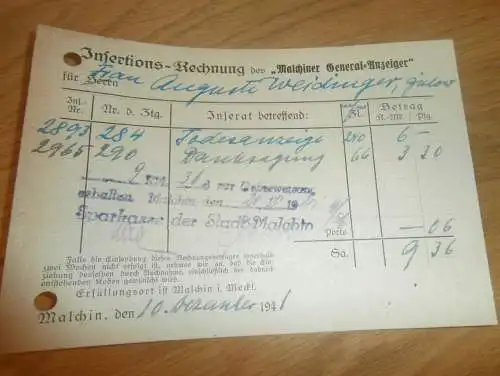 Insertions-Rechnung des „Malchiner General-Anzeiger"
für Herrn Frau Auguste Weidinger, Gülow
Inf. Nr. Nr. d. Ztg. Inserat betreffend: Zl. Betrag R.-Mk. Pfg.
2893 284 Todesanzeige 240 6 —
2965 290 Danksagung 66 3 30
9 RM. 36 zur Ueberweisung
erhalten Malchin, den
Sparkasse der Stadt Malchin
Porto — 06
Sa. 9 36
Falls die Einsendung dieses Rechnungsbetrages innerhalb
zwei Wochen nicht erfolgt ist, nehme wir an, daß die Ein-
ziehung desselben durch Nachnahme, einschließlich der dadurch
entstehenden Kosten gewünscht wird.
Erfüllungsort ist Malchin i. Meckl.
Malchin, den 10. Dezember 1941